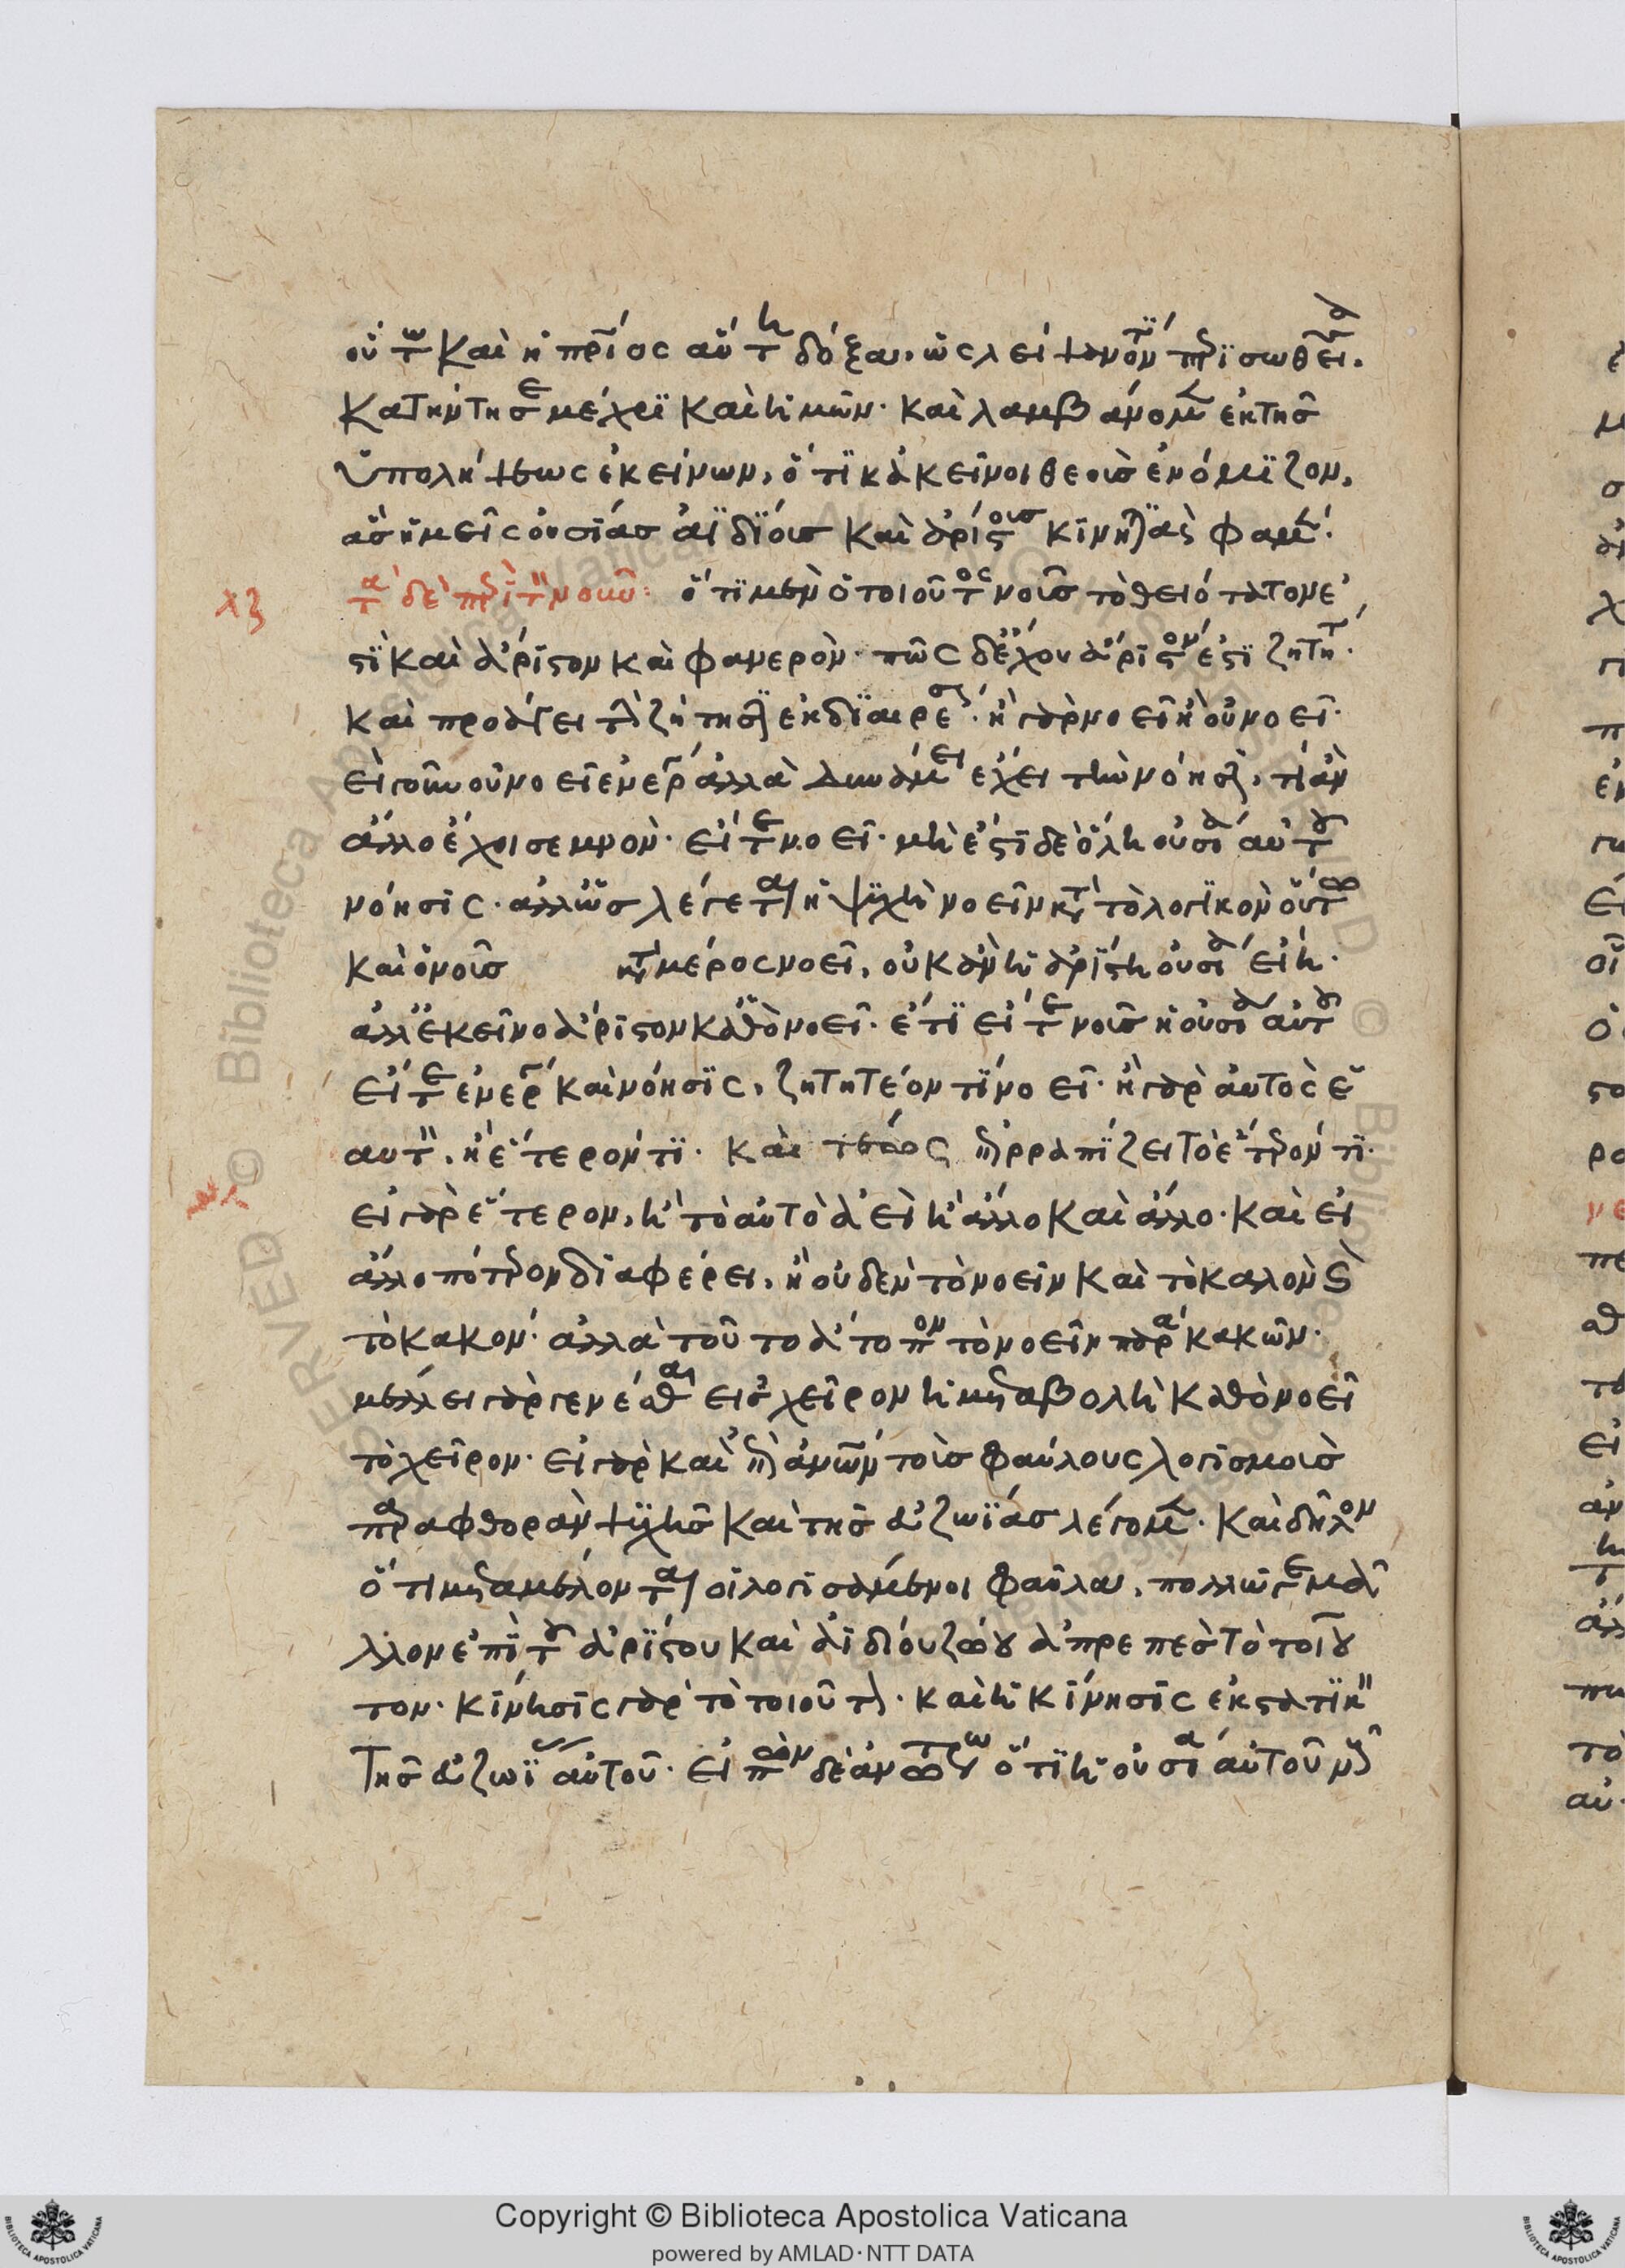 οὕτω καὶ ἡ πρίος αὕτη δόξα, ὡς λείψανόν τι περισωθεῖσα
κατήντησε μέχρι καὶ ἡμῶν· καὶ λαμβάνομεν ἐκ τῆς
ὑπολήψεως ἐκείνων, ὅτι κἀκεῖνοι θεοὺς ἐνόμιζον,
ἃς ἡμεῖς οὐσίας ἀϊδίους καὶ ἀρίστους κινητικάς φαμεν·
λζ τὰ δὲ περὶ τὸν νοῦν· ὅτι μὲν ὁ τοιοῦτος νοῦς τὸ θειότατον ἐ
στὶ καὶ ἄριστον καὶ φανερόν· πῶς δ' ἔχον ἄριστόν ἐστι ζητητ
καὶ προάγει τὴν ζήτησιν ἐκ διαιρέσεως· ἢ γὰρ νοεῖ ἢ οὐ νοεῖ·
εἰ γοῦν οὐ νοεῖ ἐνεργ ἀλλὰ δυνάμει ἔχει τὴν νόησιν, τί ἂν
ἄλλο ἔχοι σεμνόν· εἴτε νοεῖ· μὴ ἔστι δὲ ὅλη οὐσία αὐτοῦ
νόησις· ἀλλ' ὡς λέγεται ἡ ψυχὴ νοεῖν κατὰ τὸ λογικὸν οὕτω
καὶ ὁ νοῦς κατὰ μέρος νοεῖ, οὐκ ἂν ἡ ἀρίστη οὐσία εἴη·
ἀλλ' ἐκεῖνο ἄριστον καθὸ νοεῖ· ἔτι εἴτε νοῦς ἡ οὐσία αὐτοῦ
εἴτε ἐνεργ καὶ νόησις, ζητητέον τί νοεῖ· ἢ γὰρ αὐτὸς ἑ
αυτὸν, ἢ ἕτερόν τι· καὶ τέως διαρραπίζει τὸ ἕτερόν τι·
εἰ γὰρ ἕτερον, ἢ τὸ αὐτὸ ἀεὶ ἢ ἄλλο καὶ ἄλλο· καὶ εἰ
ἄλλο πότερον διαφέρει, ἢ οὐδὲν τὸ νοεῖν καὶ τὸ καλὸν καὶ
τὸ κακόν· ἀλλὰ τοῦτο ἄτοπον τὸ νοεῖν παρὰ κακῶν·
μέλλει γὰρ γενέσθαι εἰς χεῖρον ἡ μεταβολὴ καθὸ νοεῖ
τὸ χεῖρον· εἰ γὰρ καὶ ἐπὶ ἀνων τοὺς φαύλους λογισμοὺς
παραφθορὰν ψυχῆς καὶ τῆς εὐζωΐας λέγομεν· καὶ δῆλον
ὅτι μεταμέλονται οἱ λογισάμενοι φαῦλα, πολλῷ γε μᾶ
λλον ἐπὶ τοῦ ἀρίστου καὶ ἀϊδίου ζώου ἀπρεπὲς τὸ τοιοῦ
τον· κίνησις γὰρ τὸ τοιοῦτον· καὶ ἡ κίνησις ἐκστατικὴ
τῆς εὐζωΐας αὐτοῦ· εἰπὼν δὲ ἀνωτέρω ὅτι ἡ οὐσία αὐτοῦ